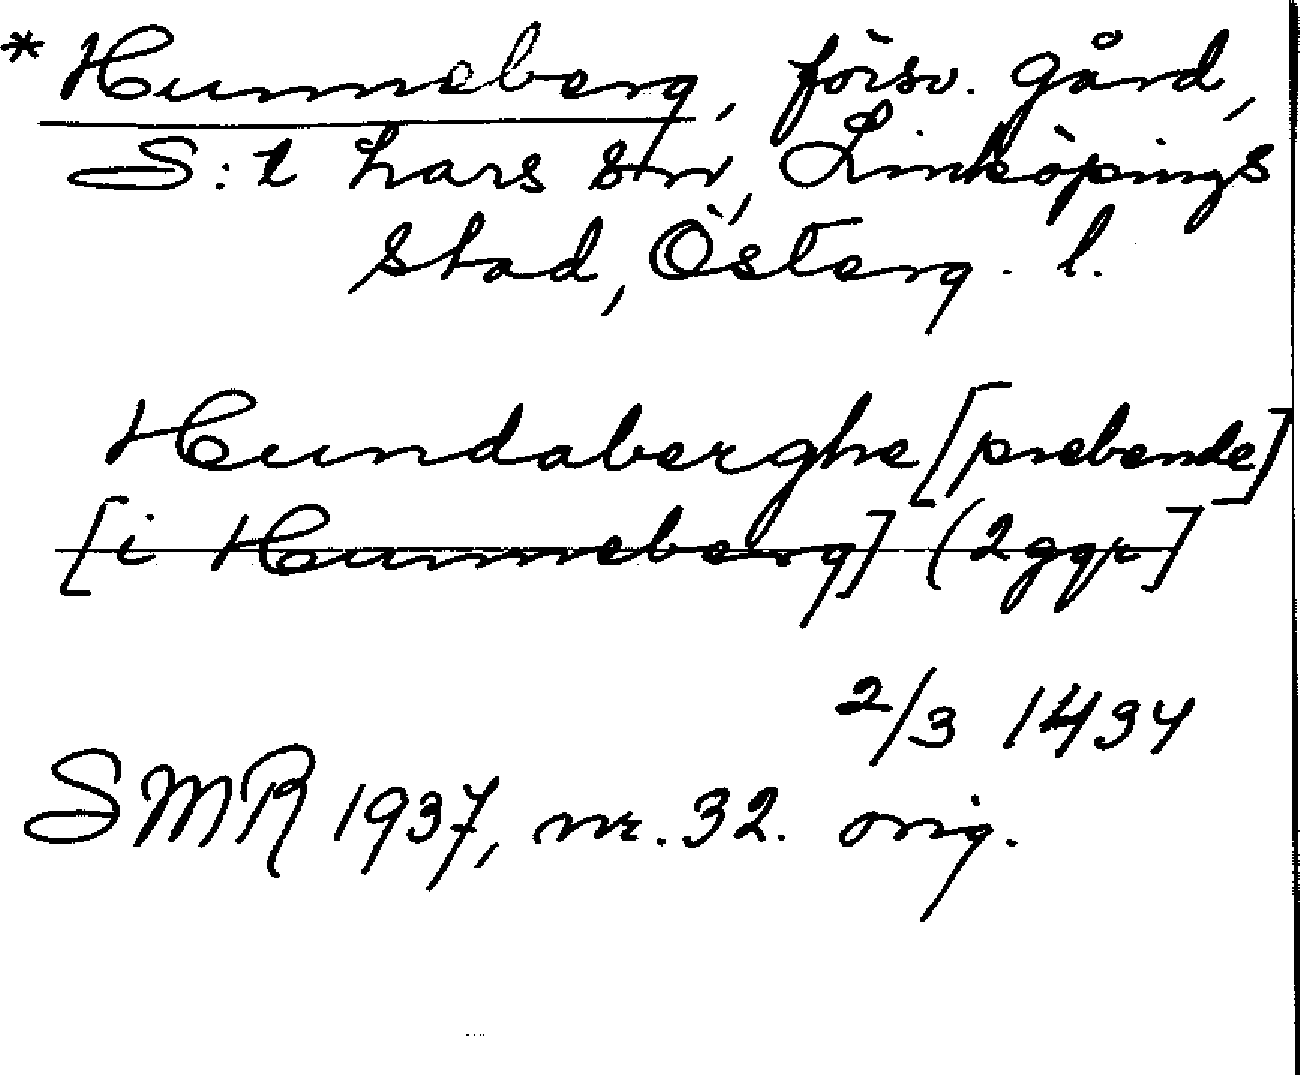 * Hunneberg, försv. gård,
S:t Lars sn, Linköpings
stad, Österg. l.
Hundaberghe [prebende]
[i Hunneberg] (2 ggr]
2/3 1434
SMR 1937, nr. 32. orig.